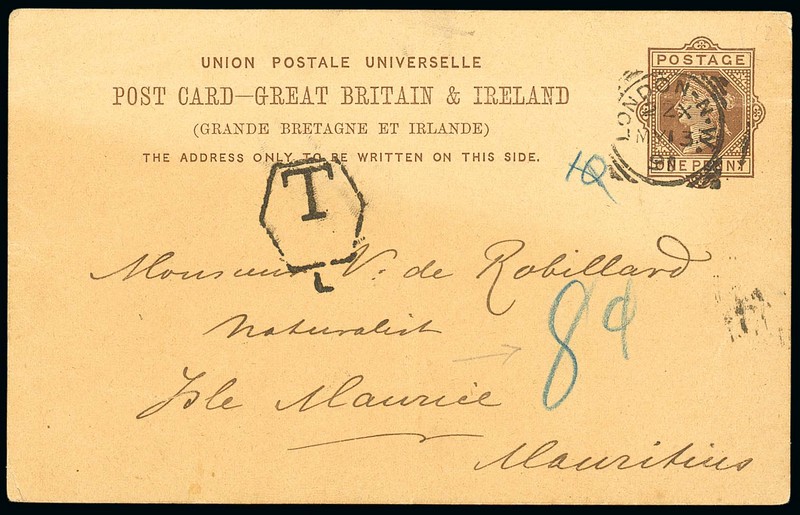 UNION POSTALE UNIVERSELLE
POST CARD—GREAT BRITAIN & IRELAND
(GRANDE BRETAGNE ET IRLANDE)
THE ADDRESS ONLY TO BE WRITTEN ON THIS SIDE.
POSTAGE
ONE PENNY
LONDON·N.W.
ZX
MY 13
T
L
Monsieur V. de Robillard
Naturalist
8d
Isle Maurice
Mauritius